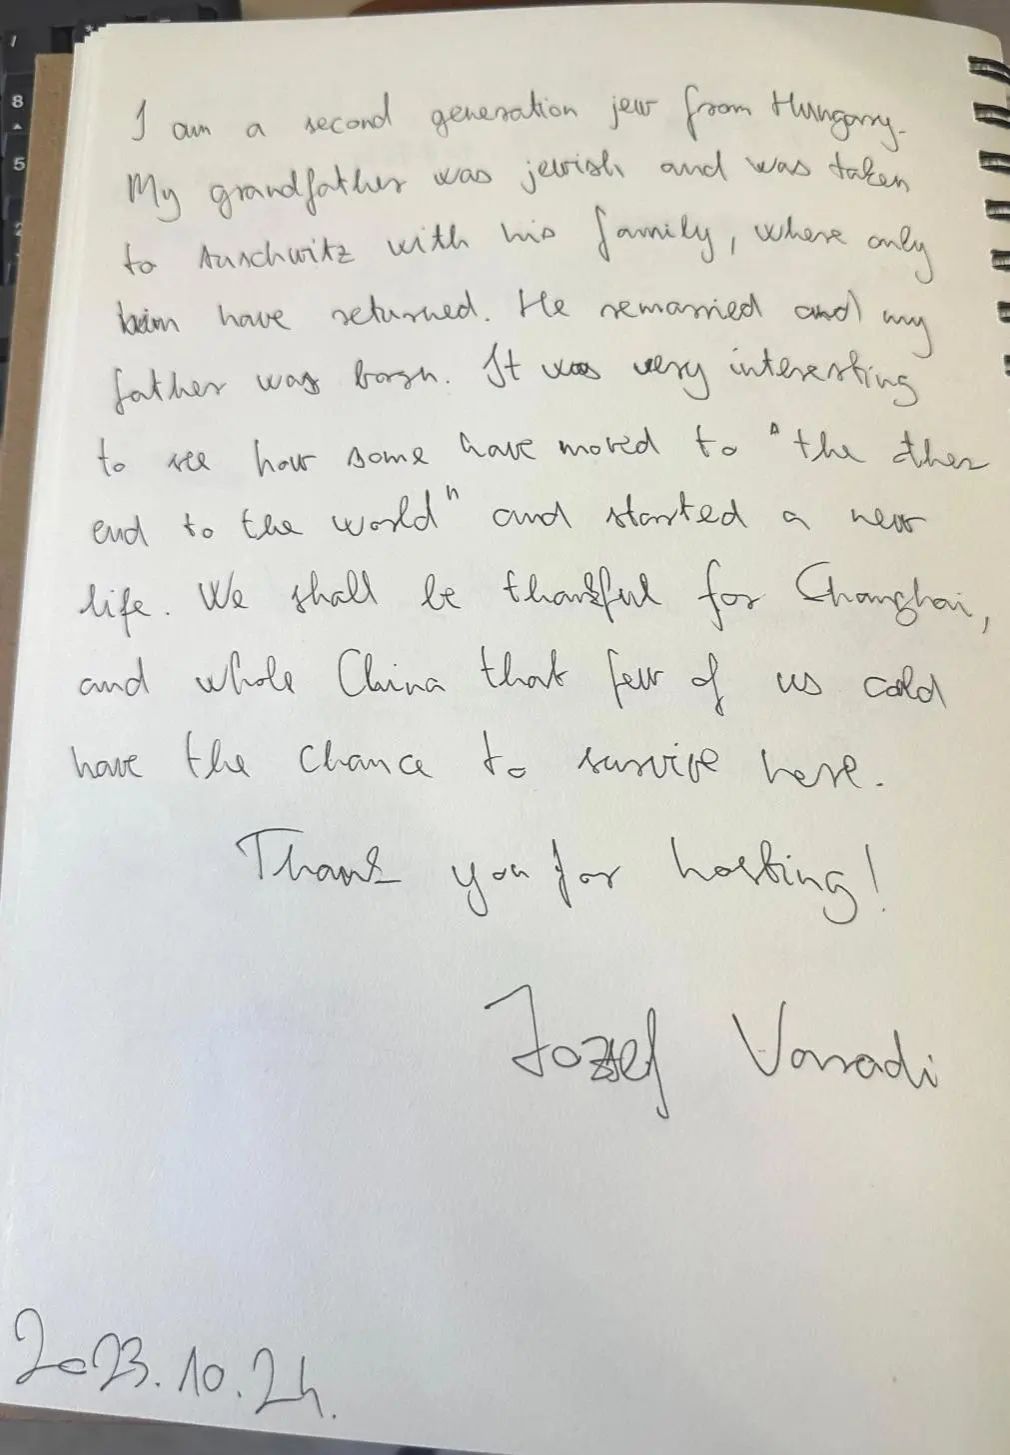 I am a second generation jew from Hungary.
My grandfather was jewish and was taken
to Auschwitz with his family, where only
him have returned. He remarried and my
father was born. It was very interesting
to see how some have moved to "the other
end to the world" and started a new
life. We shall be thankful for Changhai,
and whole China that few of us cold
have the chance to survive here.
Thank you for hosting!
Jozsef Varadi
2023.10.24.